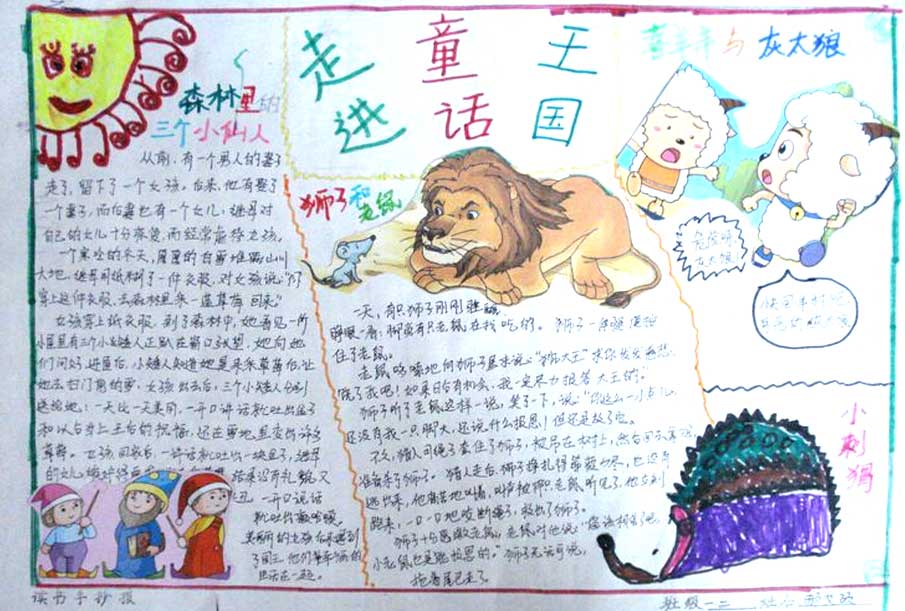 走进童话王国
森林里的
三个小仙人
从前,有一个男人的妻子
走了,留下了一个女孩。后来,他有娶了
一个妻子,而后妻也有一个女儿;继母对
自己的女儿十分疼爱,而经常虐待女孩。
一个寒冷的冬天,厚厚的白雪堆满山川
大地,继母用纸糊了一件衣服,对女孩说:“你
穿上这件衣服,去森林里采一篮草莓回来。”
女孩穿上纸衣服,到了森林中,她看见一所
小屋里有三个小矮人正趴在窗口张望,她向他
们问好,进屋后,小矮人知道她是来采草莓后,让
她去扫门角的雪,女孩出去后,三个小矮人分别
送给她:一天比一天美丽,一开口讲话就吐出金子
和以后当上王后的祝福,还在雪地里变出许多
草莓。女孩回家后,一讲话就吐出一块金子,继母
的女儿
结果没有礼貌又
丑,一开口说话
就吐出癞蛤蟆。
美丽的女孩后来遇到
了国王,他们幸福的
生活在一起。
狮子和
老鼠
一天,有只狮子刚刚睡醒,
睁眼一看,脚旁有只老鼠在找吃的。狮子一伸腿便拍
住了老鼠。
老鼠哆嗦地向狮子哀求说:“狮大王!求你发发慈悲,
饶了我吧!如果日后有机会,我一定尽力报答大王的。”
狮子听了老鼠这样一说,笑了一下,说:“你这么一小点儿,
还没有我一只脚大,还说什么报恩!但还是放了它。
不久,猎人用绳子套住了狮子,捆吊在树上,然后回去
准备杀了狮子。猎人走后,狮子挣扎得筋疲力尽,也没有
逃出来,他痛苦地叫喊,叫声被那只老鼠听见了,他立刻
跑来,一口一口地咬断绳子,救出了狮子。
狮子十分感激老鼠,老鼠对他说:“应该相信了吧,
小老鼠也是能报恩的。”狮子无话可说,
拖着尾巴走了。
喜羊羊与灰太狼
危险啊!
灰太狼!
小刺猬
读书手抄报
班级一二 姓名